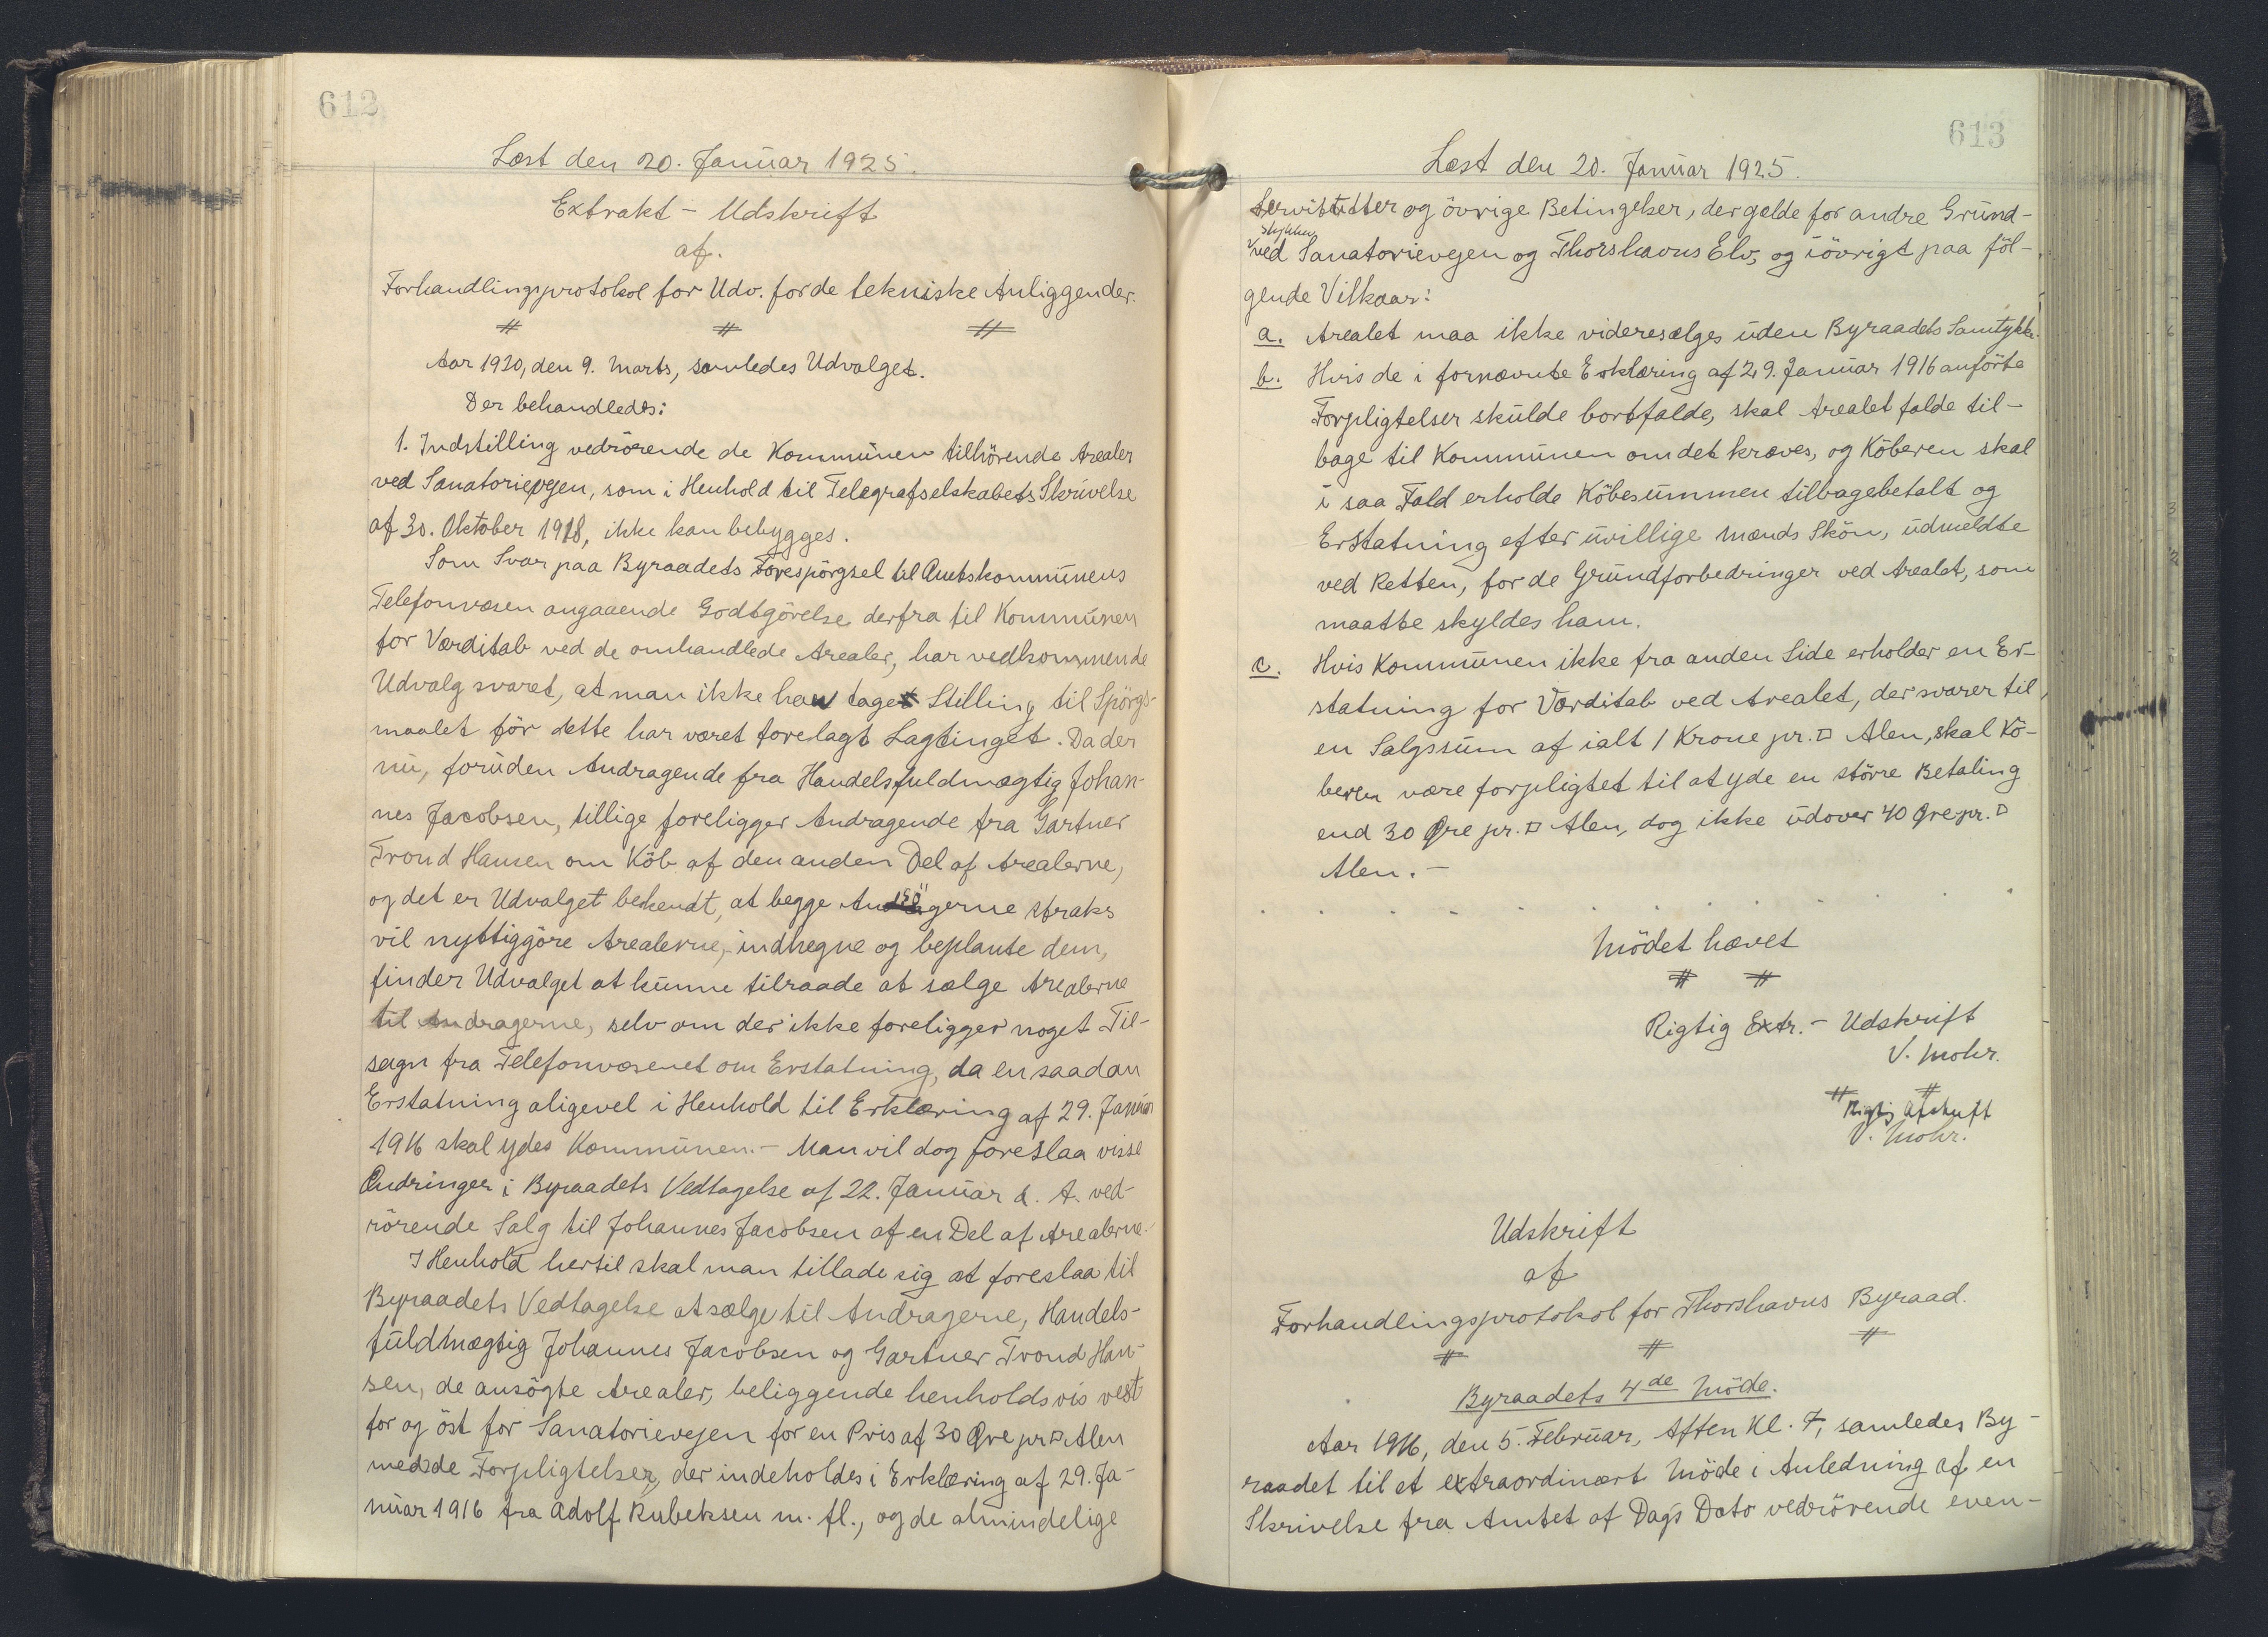 612
Læst den 20. Januar 1925.
Extrakt - Udskrift
af.
Forhandlingsprotokol for Udv. for de tekniske Anliggender.
Aar 1920, den 9. Marts, samledes Udvalget.
Der behandledes:
1. Indstilling vedrörende de Kommunen tilhörende Arealer
ved Sanatorievejen, som i Henhold til Telegrafselskabets Skrivelse
af 30. Oktober 1918, ikke kan bebygges.
Som Svar paa Byraadets Forespörgsel til Amtskommunens
Telefonvæsen angaaende Godtgörelse derfra til Kommunen
for Værditab ved de omhandlede Arealer, har vedkommende
Udvalg svaret, at man ikke kan tage Stilling til Spörgs-
maalet för dette har været forelagt Lagtinget. Da der
nu, foruden Andragende fra Handelsfuldmægtig Johan-
nes Jacobsen, tillige foreligger Andragende fra Gartner
Trond Hansen om Köb af den anden Del af Arealerne,
og det er Udvalget bekendt, at begge Ansögerne straks
vil nyttiggöre Arealerne, indhegne og beplante dem,
finder Udvalget at kunne tilraade at sælge Arealerne
til Andragerne, selv om der ikke foreligger noget Til-
sagn fra Telefonvæsenet om Erstatning, da en saadan
Erstatning aligevel i Henhold til Erklæring af 29. Januar
1916 skal ydes Kommunen. - Man vil dog foreslaa visse
Ændringer i Byraadets Vedtagelse af 22. Januar d. A. ved-
rörende Salg til Johannes Jacobsen af en Del af Arealerne.
I Henhold hertil skal man tillade sig at foreslaa til
Byraadets Vedtagelse at sælge til Andragerne, Handels-
fuldmægtig Johannes Jacobsen og Gartner Trond Han-
sen, de ansögte Arealer, beliggende henholdsvis vest
for og öst for Sanatorievejen for en Pris af 30 Øre pr □ Alen
med de Forpligtelser, der indeholdes i Erklæring af 29. Ja-
nuar 1916 fra Adolf Rubeksen m. fl., og de almindelige
613
Læst den 20. Januar 1925.
Servitutter og övrige Betingelser, der gælde for andre Grund-
stykker
ved Sanatorievejen og Thorshavns Elv, og iövrigt paa föl-
gende Vilkaar:
a. Arealet maa ikke videresælges uden Byraadets Samtykke.
b. Hvis de i fornævnte Erklæring af 29. Januar 1916 anförte
Forpligtelser skulde bortfalde, skal Arealet falde til-
bage til Kommunen om det kræves, og Köberen skal
i saa Fald erholde Köbesummen tilbagebetalt og
Erstatning efter uvillige Mænds Skön, udmeldte
ved Retten, for de Grundforbedringer ved Arealet, som
maatte skyldes ham.
c. Hvis Kommunen ikke fra anden Side erholder en Er-
statning for Værditab ved Arealet, der svarer til
en Salgssum af ialt 1 Krone pr. □ Alen, skal Kö-
beren være forpligtet til at yde en större Betaling
end 30 Øre pr. □ Alen, dog ikke udover 40 Øre pr. □
Alen. -
Mödet hævet
Rigtig Extr. - Udskrift
V. Mohr.
Rigtig Afskrift
V. Mohr.
Udskrift
af
Forhandlingsprotokol for Thorshavns Byraad.
Byraadets 4de Möde.
Aar 1916, den 5. Februar, Aften Kl. 7, samledes By-
raadet til et extraordinært Möde i Anledning af en
Skrivelse fra Amtet af Dags Dato vedrörende even-